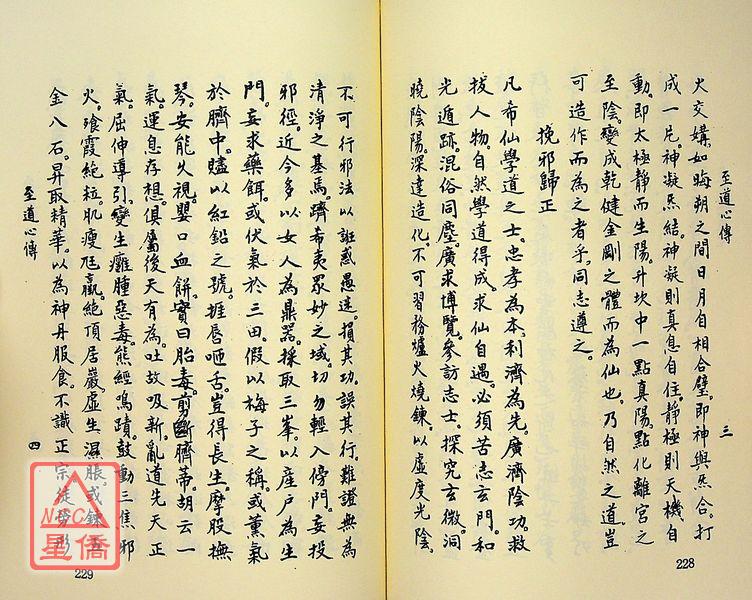 至道心傳
三
火交媾。如晦朔之間日月自相合璧。即神與炁合。打
成一片。神凝炁結。神凝則真息自住。靜極則天機自
動。即太極靜而生陽。升坎中一點真陽。點化離宮之
至陰。變成乾健金剛之體而為仙也。乃自然之道豈
可造作而為之者乎。同志遵之。
挽邪歸正
凡希仙學道之士。忠孝為本。利濟為先。廣濟陰功。救
拔人物。自然學道得成。求仙自遇。必須苦志玄門。和
光遁跡。混俗同塵。廣求博覽。參訪志士。探究玄微。洞
曉陰陽。深達造化。不可習務爐火燒鍊。以虛度光陰。
228
不可行邪法以誑惑愚迷。損其功。誤其行。難證無為
清淨之基焉。躋希夷眾妙之域。切勿輕入傍門。妄投
邪徑。近今多以女人為鼎器。採取三峯。以産户為生
門。妄求藥餌。或伏氣於三田。假以梅子之稱。或薰氣
於臍中。瞌以紅鉛之號。捱唇咂舌。豈得長生。摩股撫
琴。安能久視。嬰口血餅。實曰胎毒。剪斷臍蒂。胡云一
氣。運息存想。俱屬後天有為。吐故吸新。亂道先天正
氣。屈伸導引。變生癰腫惡毒。熊經鳴蹟。鼓動三焦邪
火。飡霞絕粒。肌瘦尫羸。絕頂居巖。虛生濕脹。或鍊五
金八石。昇取精華。以為神丹服食。不識正宗徒勞形
至道心傳
四
229
NCC
星僑